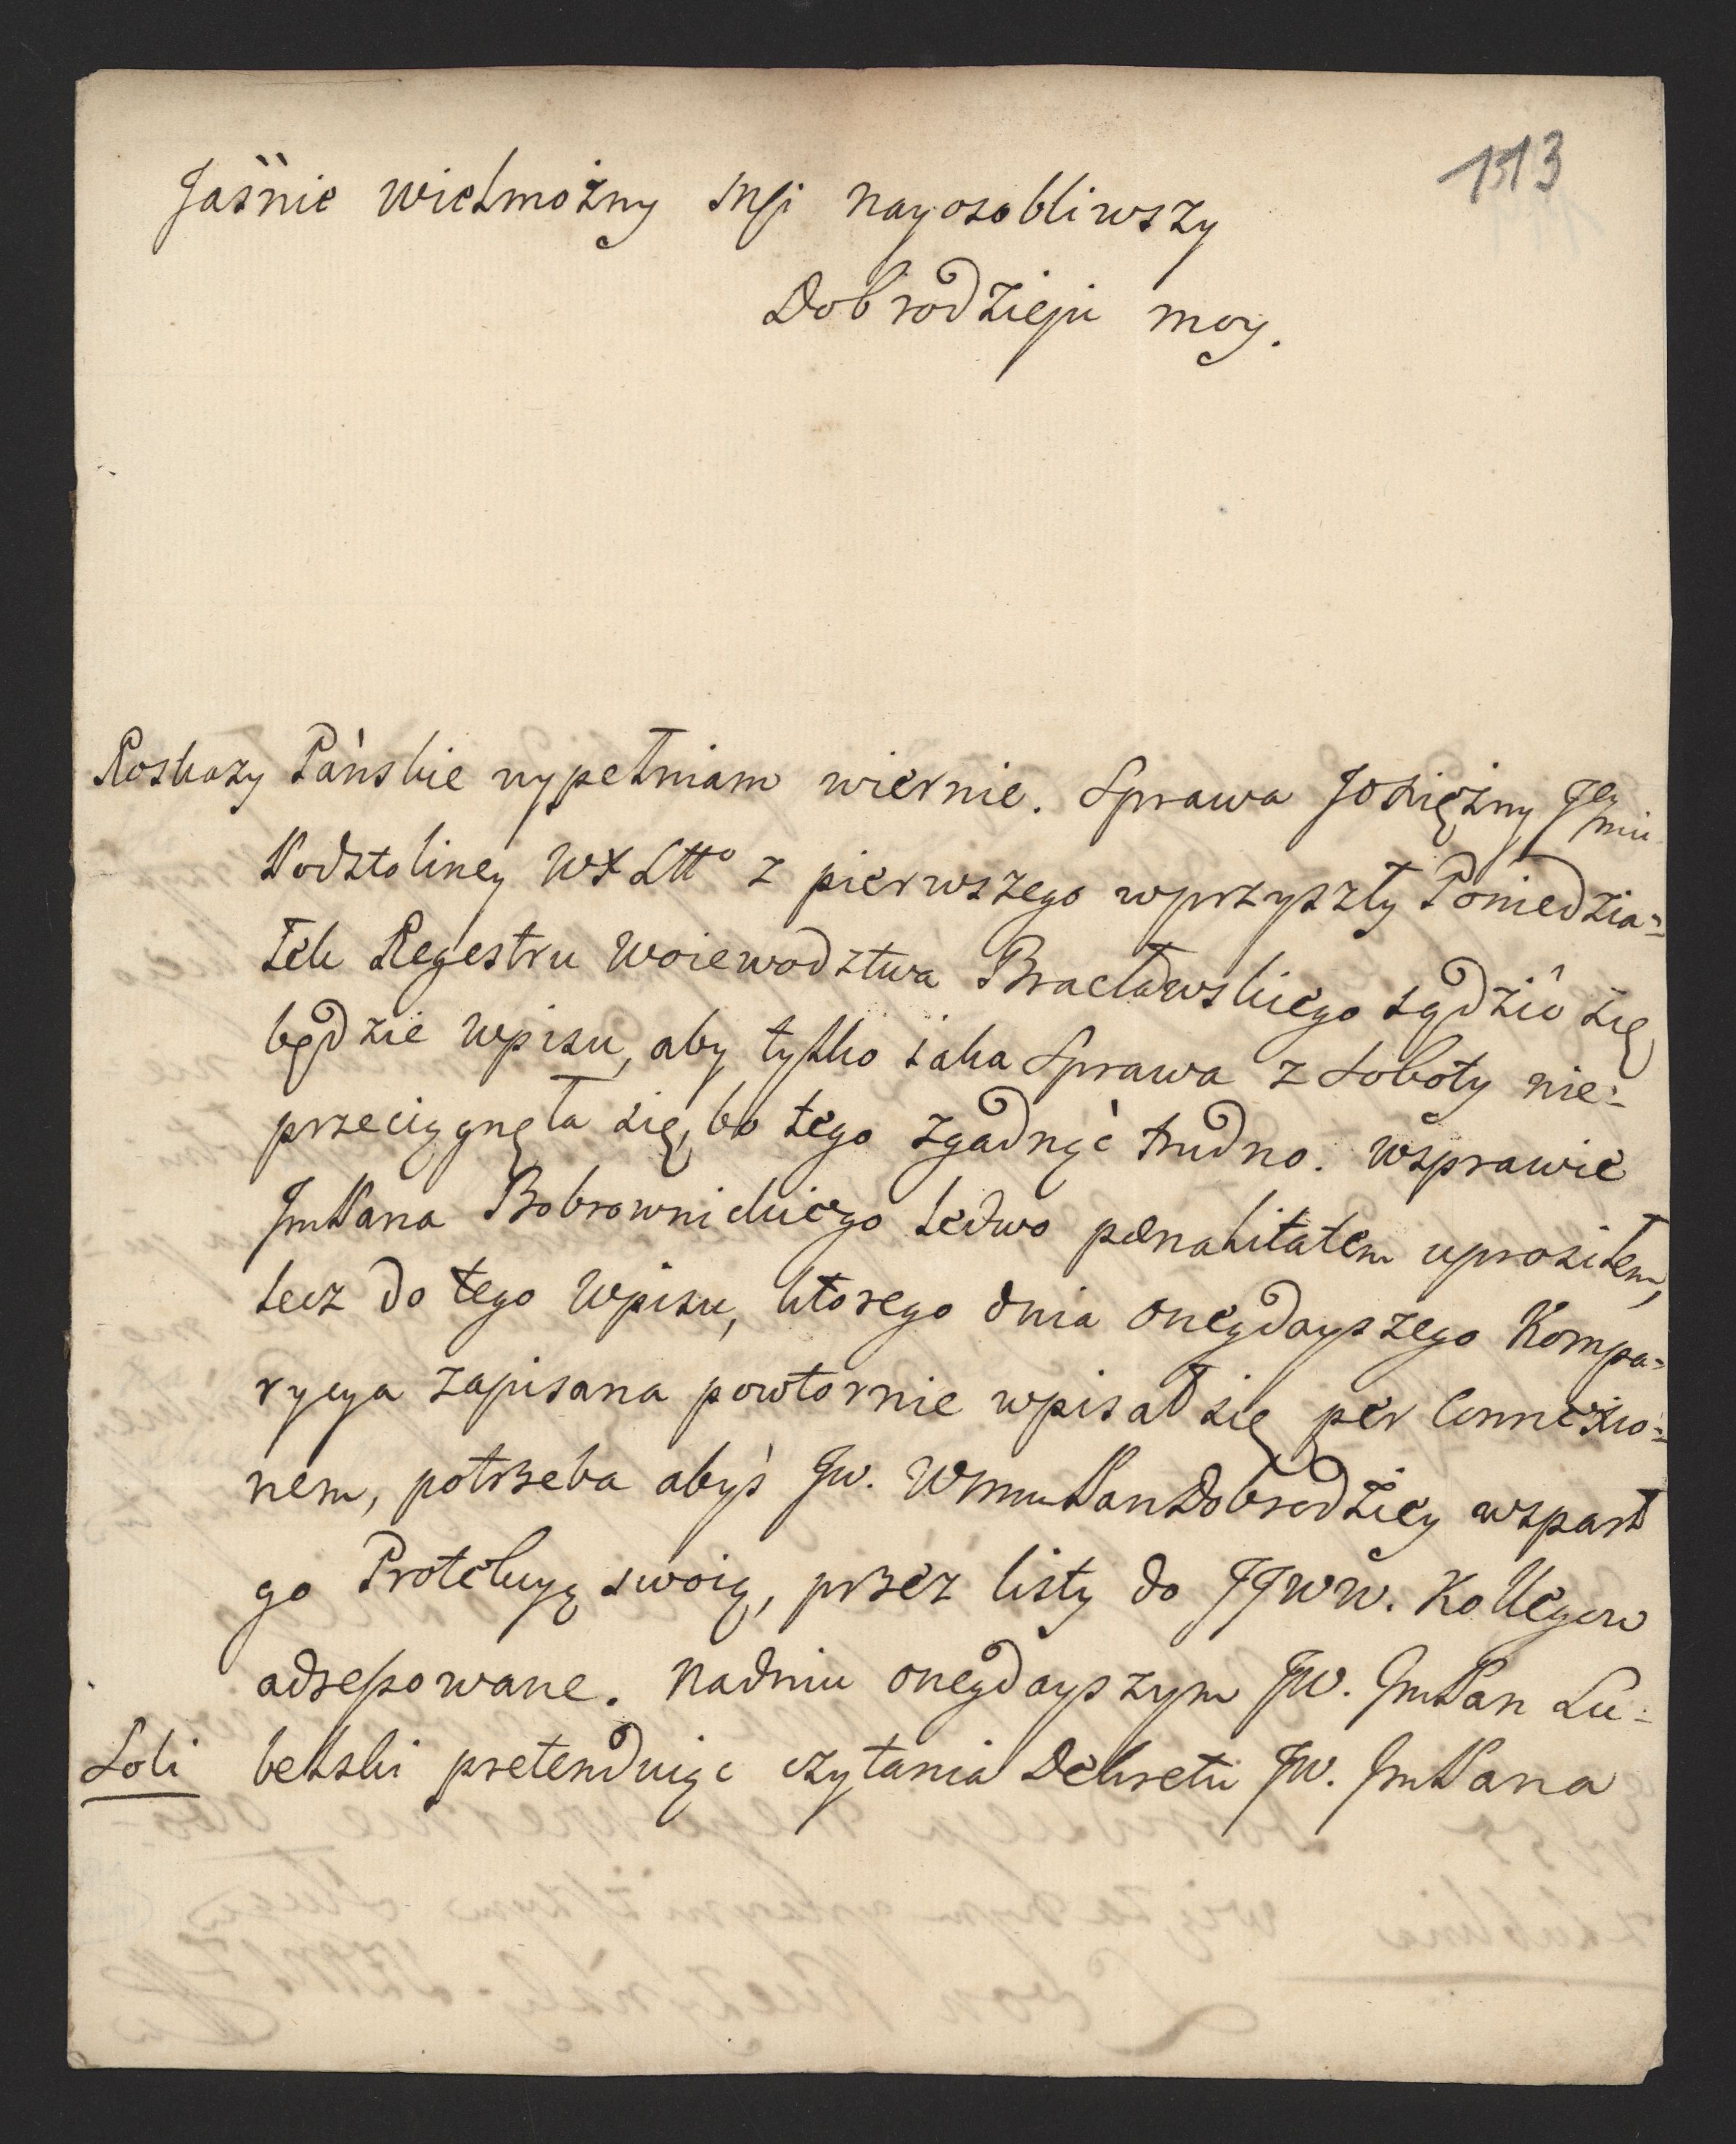 113
Jaśnie Wielmożny Msi nayosobliwszy
Dobrodzieju moy.
Roskazy Pańskie wypełniam wiernie. Sprawa JOxiężny Jey
Podstoliney WXLtto z pierwszego wprzyszły Poniedzia-
łek Regestru Woiewodztwa Bracławskiego sądzić się
będzie wpisu, aby tylko iaka Sprawa z Soboty nie-
przeciągnęła się, bo tego zgadnąć trudno. Wsprawie
JmPana Bobrownickiego ledwo pœnalitatem uprosiłem,
lecz do tego Wpisu, ktorego dnia onegdayszego Kompa-
rycya zapisana powtornie wpisał się per Connexio-
nem, potrzeba abyś JW. WmmPanDobrodziey wsparł
go Protekcyą swoią, przez listy do JJWW. Kollegow
adressowane. Nadniu onegdayszym JW. JmPan Lu-
Soli belski pretenduiąc czytania Dekretu JW. JmPana